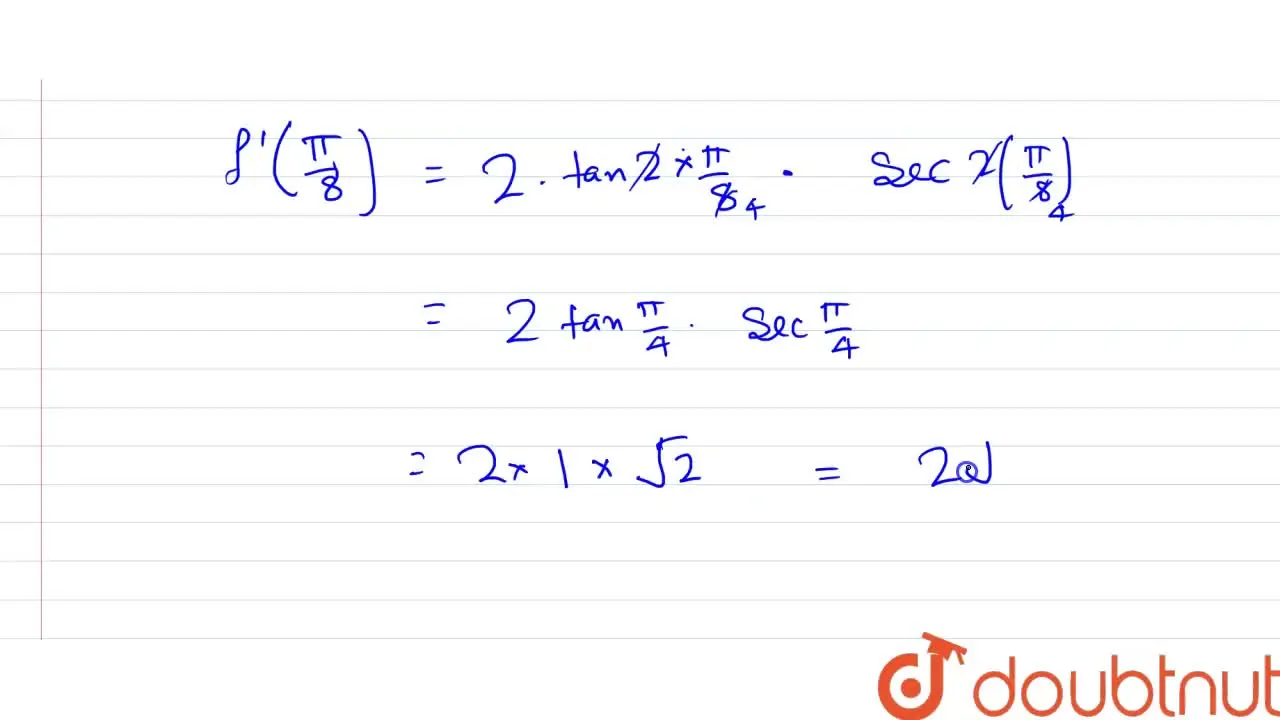 f'(π/8) = 2 · tan 2 × π/8 4 · sec 2(π/8 4)
= 2 tan π/4 · sec π/4
= 2 × 1 × √2 = 2
doubtnut